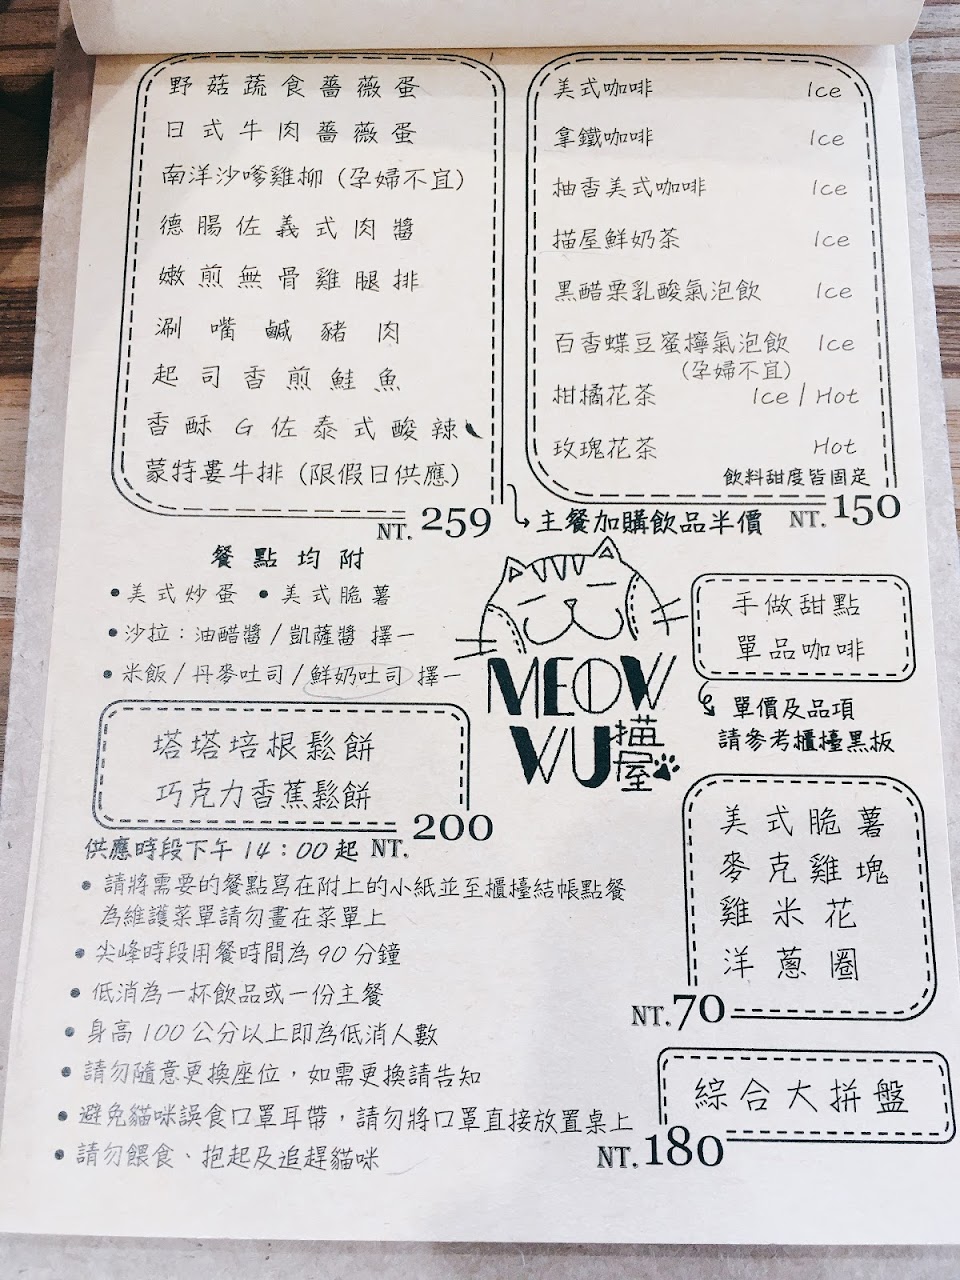 野菇蔬食薔薇蛋
日式牛肉薔薇蛋
南洋沙嗲雞柳 (孕婦不宜)
德腸佐義式肉醬
嫩煎無骨雞腿排
涮嘴鹹豬肉
起司香煎鮭魚
香酥G佐泰式酸辣
蒙特婁牛排 (限假日供應)
NT. 259
美式咖啡 Ice
拿鐵咖啡 Ice
柚香美式咖啡 Ice
描屋鮮奶茶 Ice
黑醋栗乳酸氣泡飲 Ice
百香蝶豆蜜擰氣泡飲 Ice
(孕婦不宜)
柑橘花茶 Ice / Hot
玫瑰花茶 Hot
飲料甜度皆固定
NT. 150
主餐加購飲品半價
餐點均附
• 美式炒蛋 • 美式脆薯
• 沙拉：油醋醬 / 凱薩醬 擇一
• 米飯 / 丹麥吐司 / 鮮奶吐司 擇一
MEOW
WU 描屋
手做甜點
單品咖啡
單價及品項
請參考櫃檯黑板
塔塔培根鬆餅
巧克力香蕉鬆餅
供應時段下午14：00起 NT. 200
• 請將需要的餐點寫在附上的小紙並至櫃檯結帳點餐
為維護菜單請勿畫在菜單上
• 尖峰時段用餐時間為90分鐘
• 低消為一杯飲品或一份主餐
• 身高100公分以上即為低消人數
• 請勿隨意更換座位，如需更換請告知
• 避免貓咪誤食口罩耳帶，請勿將口罩直接放置桌上
• 請勿餵食、抱起及追趕貓咪
美式脆薯
麥克雞塊
雞米花
洋蔥圈
NT. 70
綜合大拼盤
NT. 180